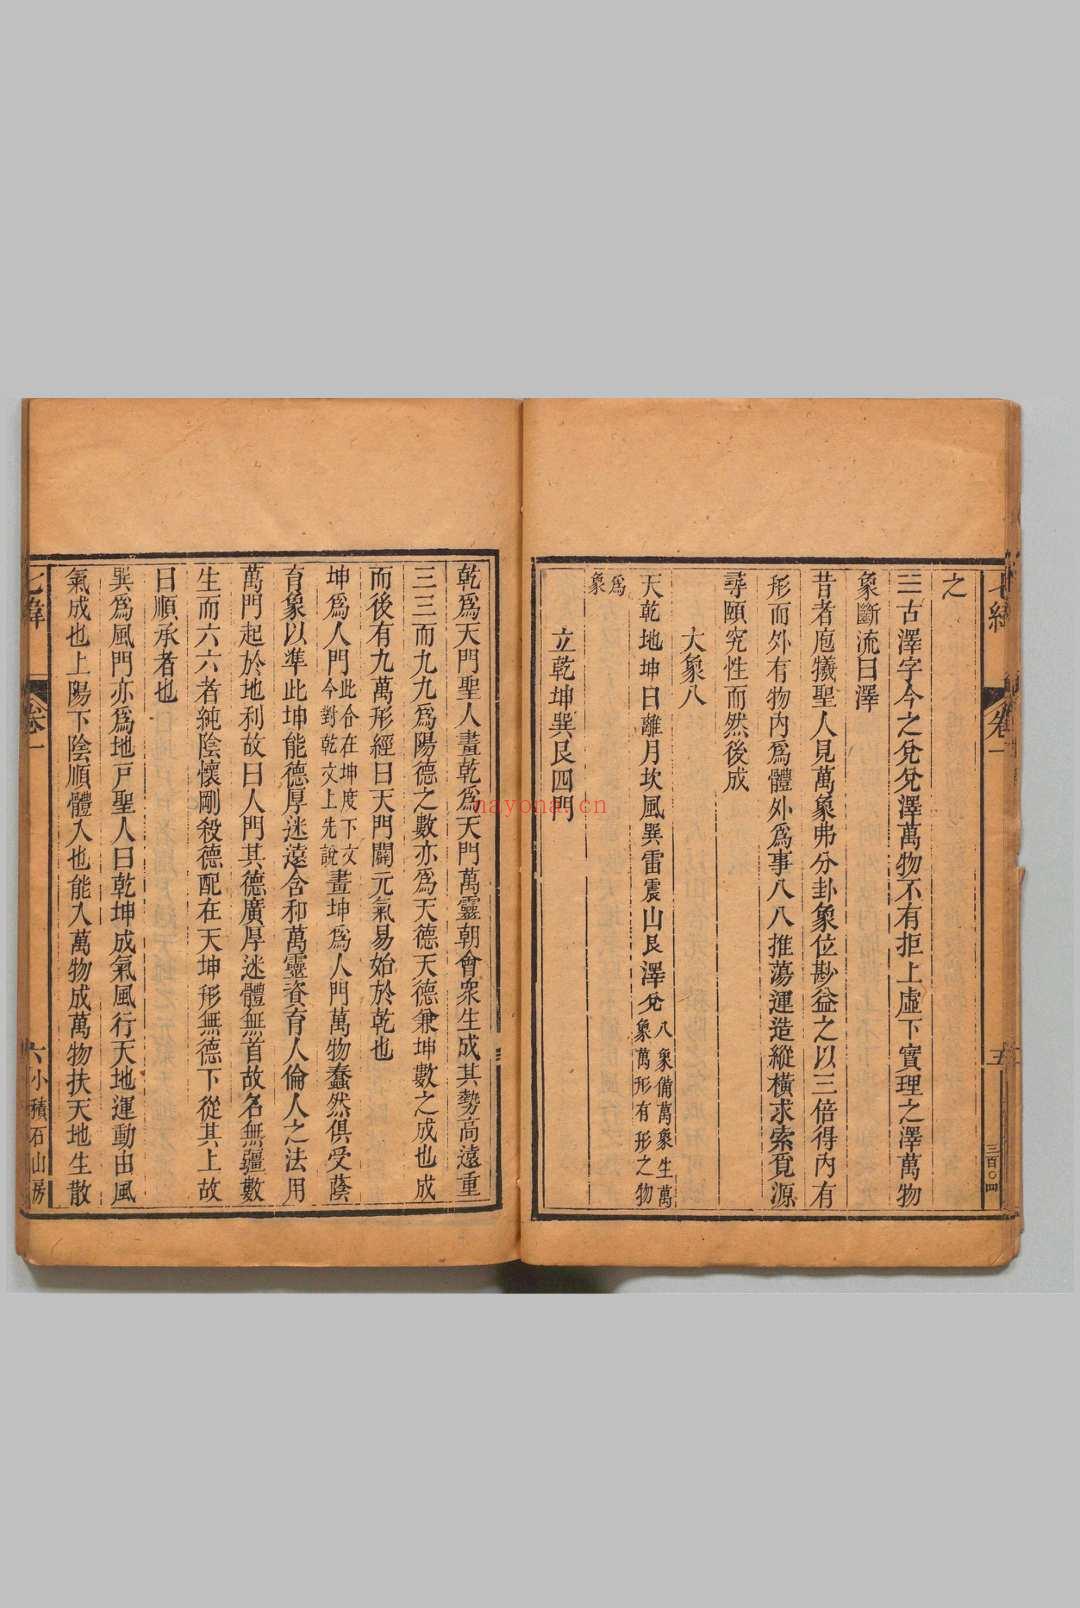 之
三古澤字今之兌兌澤萬物不有拒上虛下實理之澤萬物
象斷流曰澤
昔者庖犧聖人見萬象弗分卦象位尠益之以三倍得內有
形而外有物內爲體外爲事八八推蕩運造縱橫求索覓源
尋頤究性而然後成
大象八
天乾地坤日離月坎風巽雷震山艮澤兌八象備萬象生萬象萬形有形之物
爲象
立乾坤巽艮四門
卷一
五
三百〇四
乾爲天門聖人畫乾爲天門萬靈朝會衆生成其勢高遠重
三三而九九爲陽德之數亦爲天德天德兼坤數之成也成
而後有九萬形經曰天門闢元氣易始於乾也
坤爲人門此合在坤度下文今對乾文上先說畫坤爲人門萬物蠢然俱受蔭
育象以準此坤能德厚迷遠含和萬靈資育人倫人之法用
萬門起於地利故曰人門其德廣厚迷體無首故名無疆數
生而六六者純陰懷剛殺德配在天坤形無德下從其上故
曰順承者也
巽爲風門亦爲地戸聖人曰乾坤成氣風行天地運動由風
氣成也上陽下陰順體入也能入萬物成萬物扶天地生散
七緯
卷一
六
小積石山房
nayona.cn